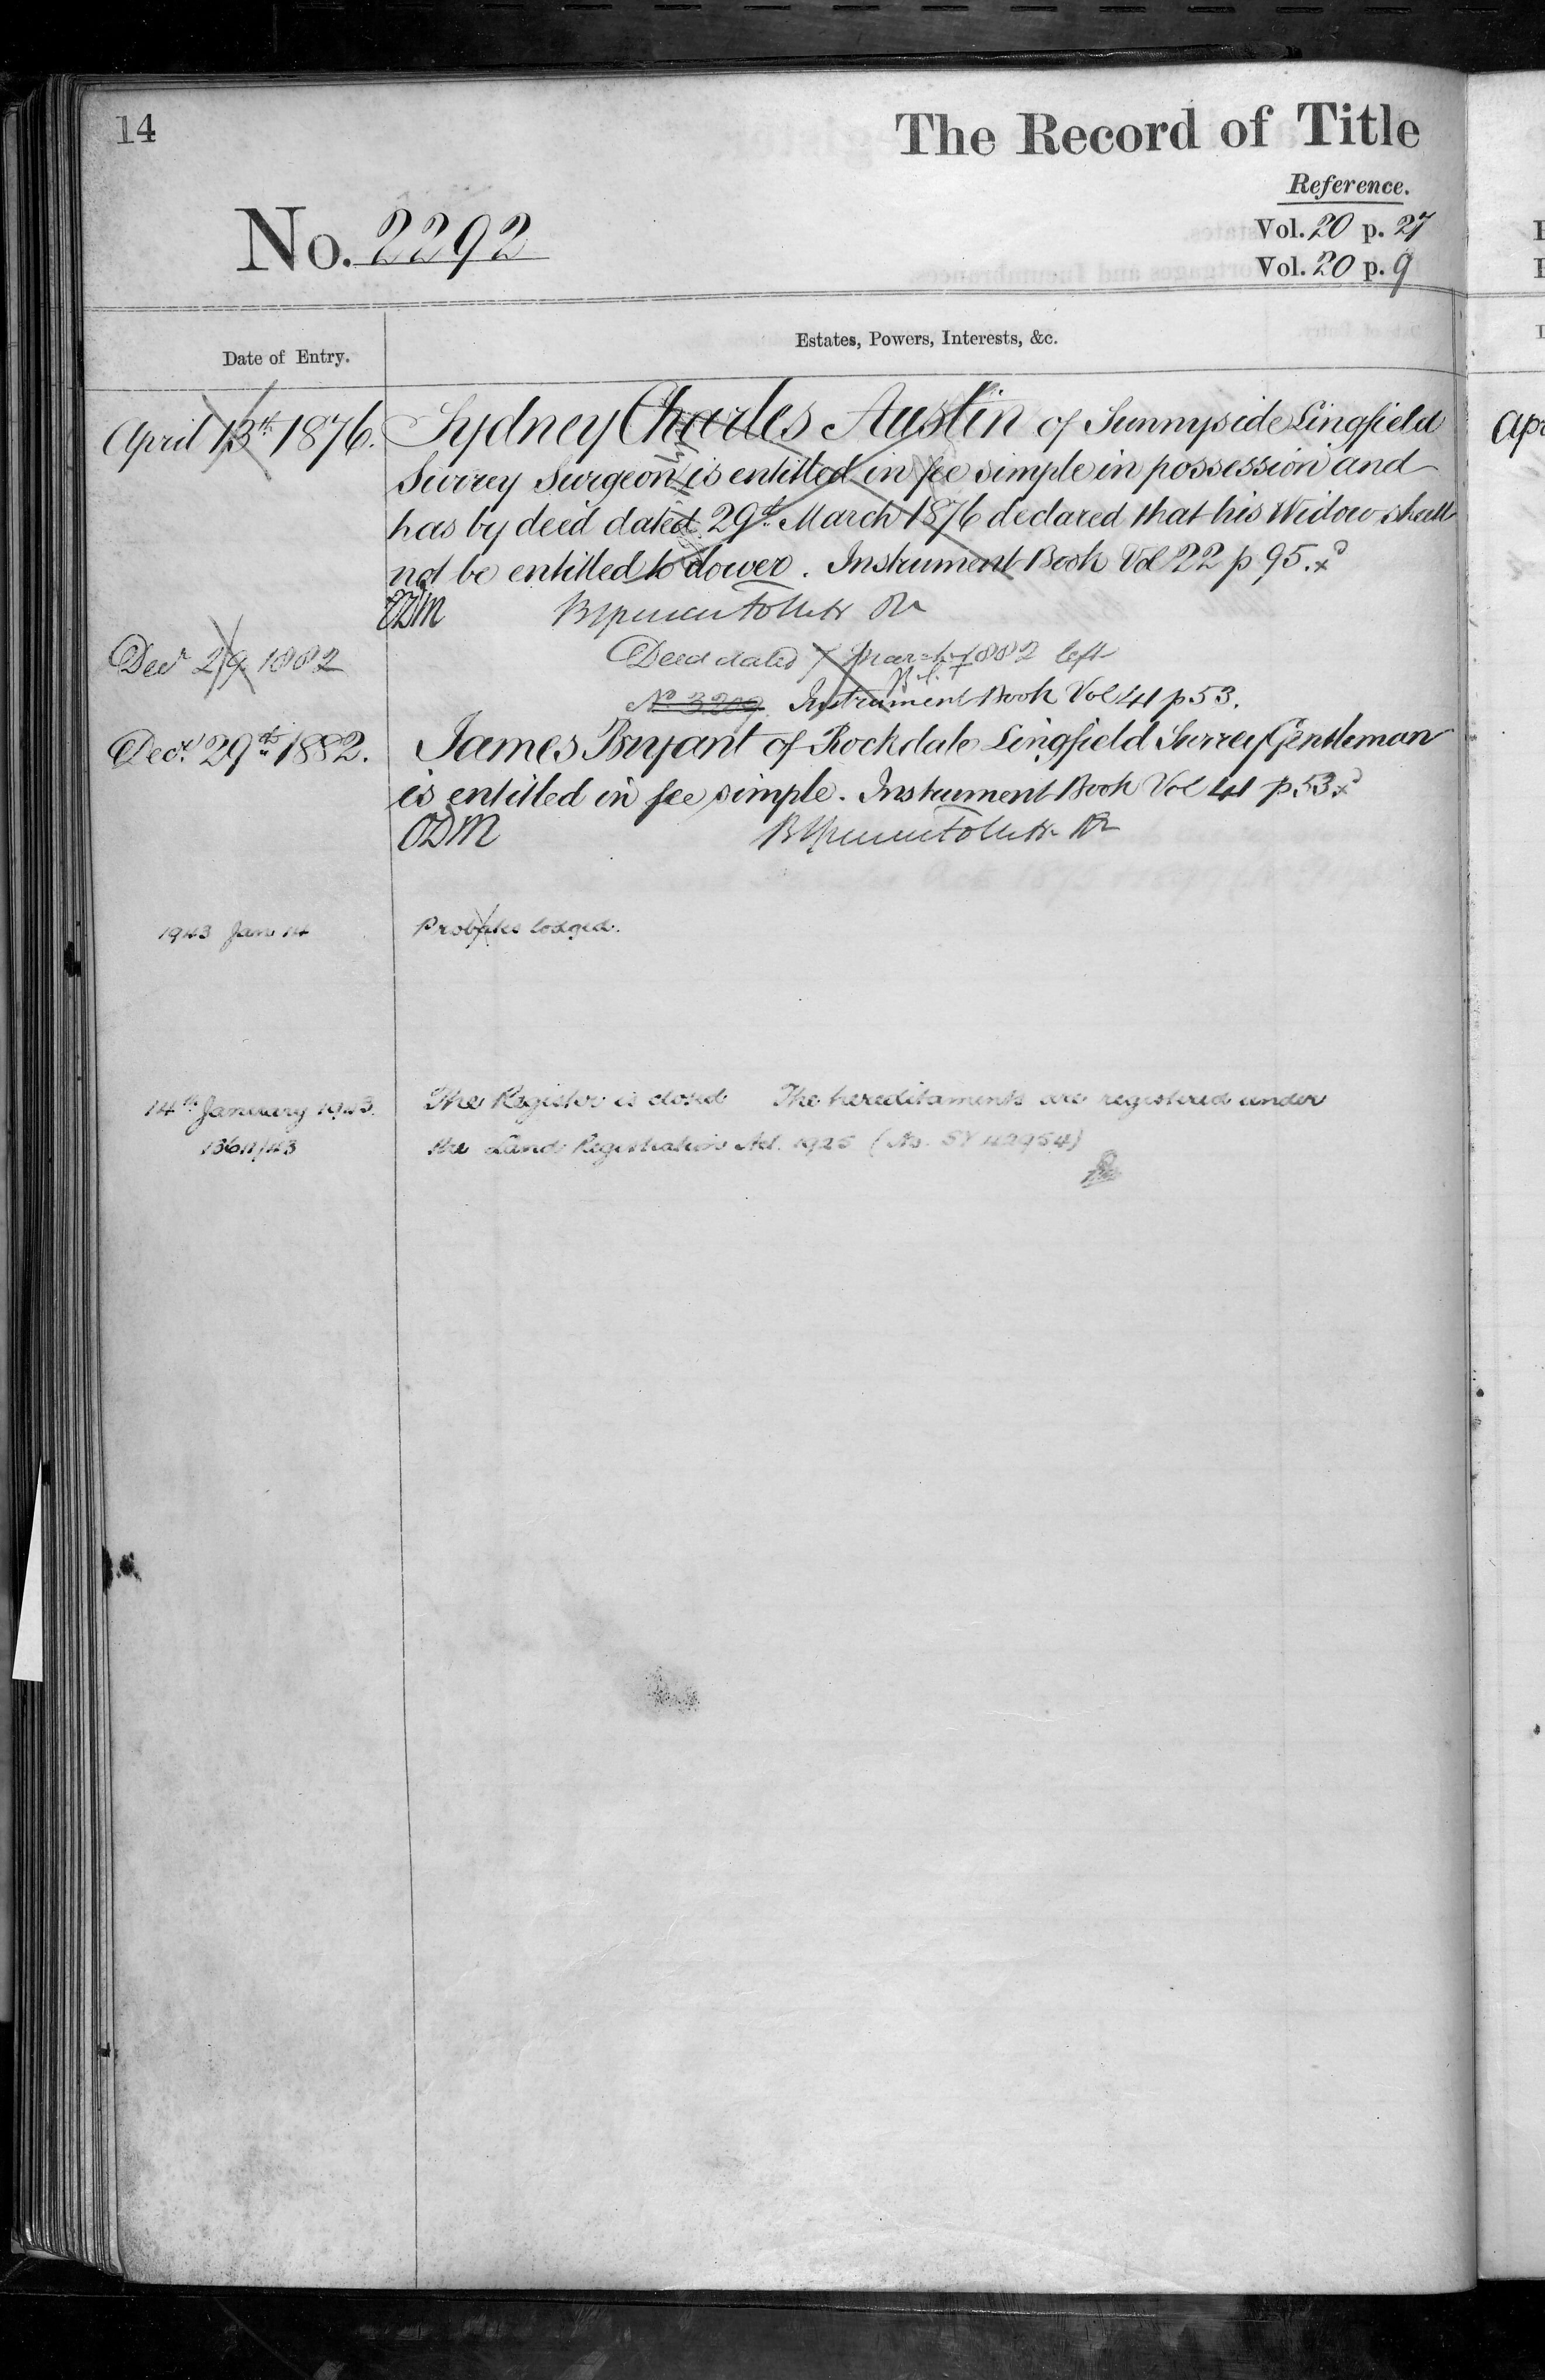 14
The Record of Title
Reference.
No. 2292
Vol. 20 p. 27
Vol. 20 p. 9
Date of Entry.
Estates, Powers, Interests, &c.
April 13th 1876.
Sydney Charles Austin of Sunnyside Lingfield
Surrey Surgeon is entitled in fee simple in possession and
has by deed dated 29th March 1876 declared that his Widow shall
not be entitled to dower. Instrument Book Vol 22 p 95.
ODM
Decr 29 1882
Deed dated 7 March 1882 left
No 3209. Instrument Book Vol 41 p 53.
Decr 29th 1882.
James Bryant of Rockdale Lingfield Surrey Gentleman
is entitled in fee simple. Instrument Book Vol 41 p 53
ODM
1943 Jan 14
Probates lodged.
14th January 1943.
The Register is closed The hereditaments are registered under
the Land Registration Act. 1925 (No. SY 42954)
Apr